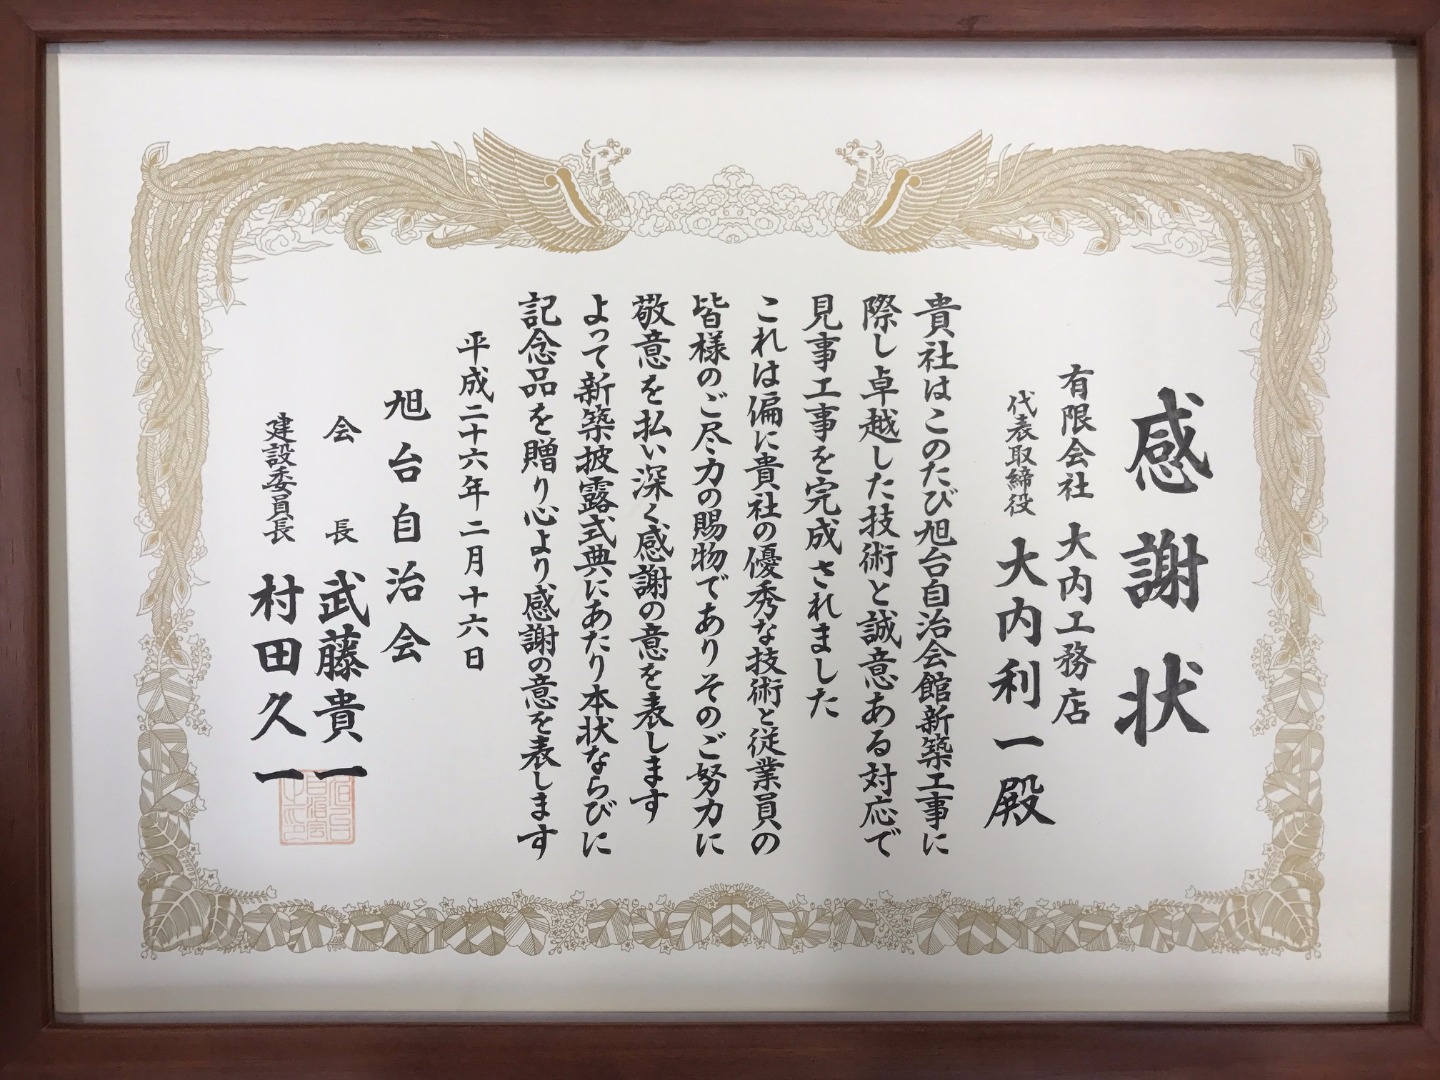 感謝状
有限会社 大内工務店
代表取締役 大内利一殿
貴社はこのたび旭台自治会館新築工事に
際し卓越した技術と誠意ある対応で
見事工事を完成されました
これは偏に貴社の優秀な技術と従業員の
皆様のご尽力の賜物でありそのご努力に
敬意を払い深く感謝の意を表します
よって新築披露式典にあたり本状ならびに
記念品を贈り心より感謝の意を表します
平成二十六年二月十六日
旭台自治会
会長 武藤貴一
建設委員長 村田久一